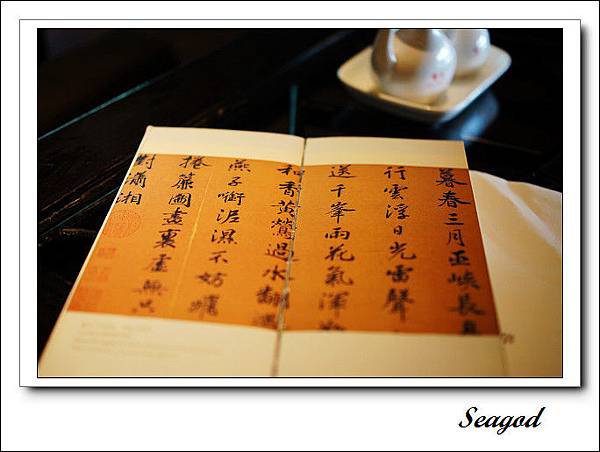 暮春三月巫峽長
行雲浮日光雷聲
送千峯雨花氣渾
和香黃鶯過水翻
燕子銜泥濕不妨
捲簾圖畫裏虛無只
對瀟湘
Seagod